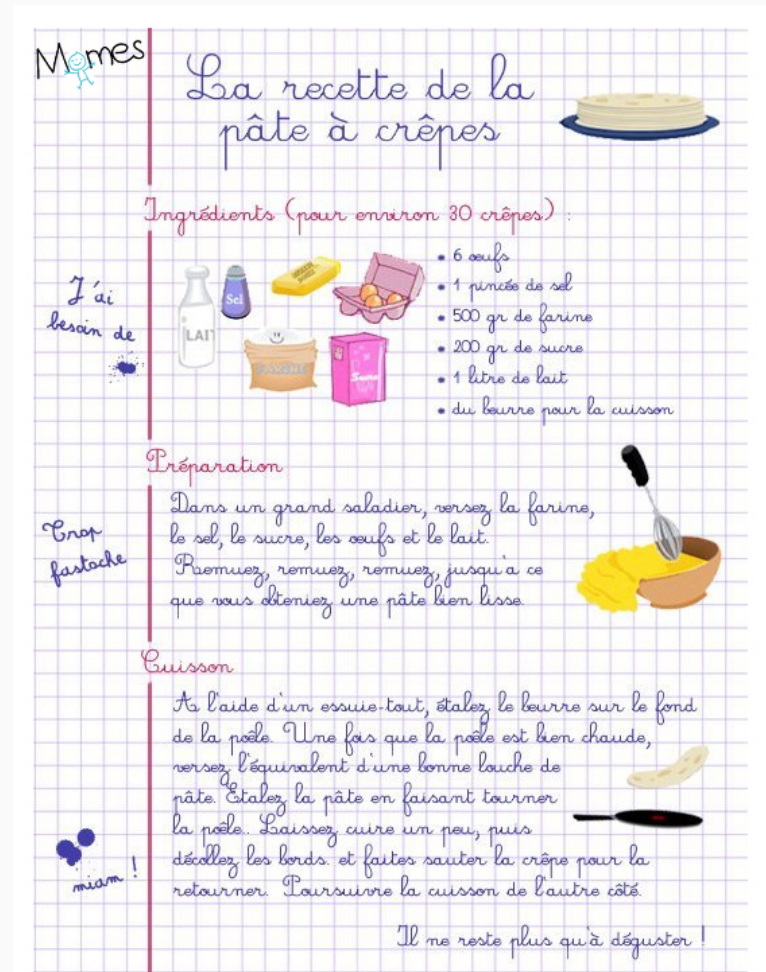 Momes
La recette de la
pâte à crêpes
Ingrédients (pour environ 30 crêpes) :
J'ai
besoin de
LAIT
Sel
FARINE
Sucre
• 6 œufs
• 1 pincée de sel
• 500 gr de farine
• 200 gr de sucre
• 1 litre de lait
• du beurre pour la cuisson
Préparation
Trop
fastoche
Dans un grand saladier, versez la farine,
le sel, le sucre, les œufs et le lait.
Remuez, remuez, remuez, jusqu'à ce
que vous obteniez une pâte bien lisse.
Cuisson
A l'aide d'un essuie-tout, étalez le beurre sur le fond
de la poêle. Une fois que la poêle est bien chaude,
versez l'équivalent d'une bonne louche de
pâte. Étalez la pâte en faisant tourner
la poêle.. Laissez cuire un peu, puis
décollez les bords. et faites sauter la crêpe pour la
retourner. Poursuivre la cuisson de l'autre côté.
miam !
Il ne reste plus qu'à déguster !